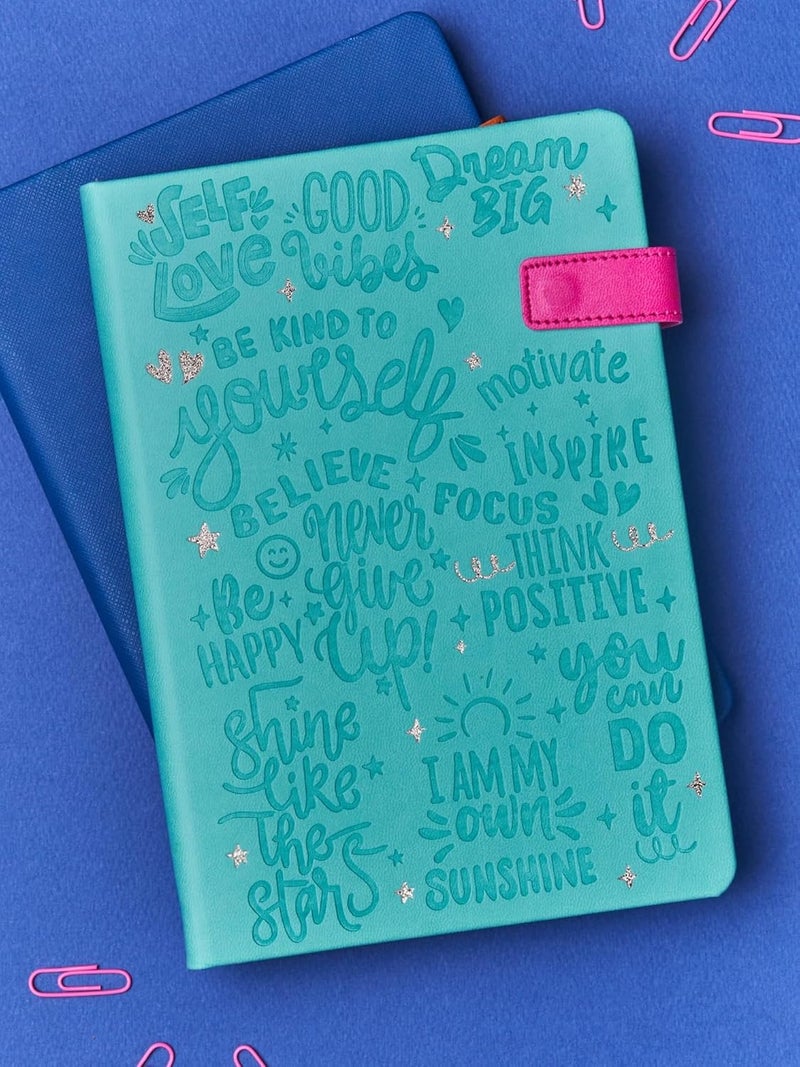 SELF
LOVE
GOOD
Vibes
Dream
BIG
BE KIND TO
yourself
motivate
INSPIRE
BELIEVE
FOCUS
Never
give
Up!
THINK
POSITIVE
Be
HAPPY
you
can
DO
it
Shine
like
The
stars
I AM MY
own
SUNSHINE